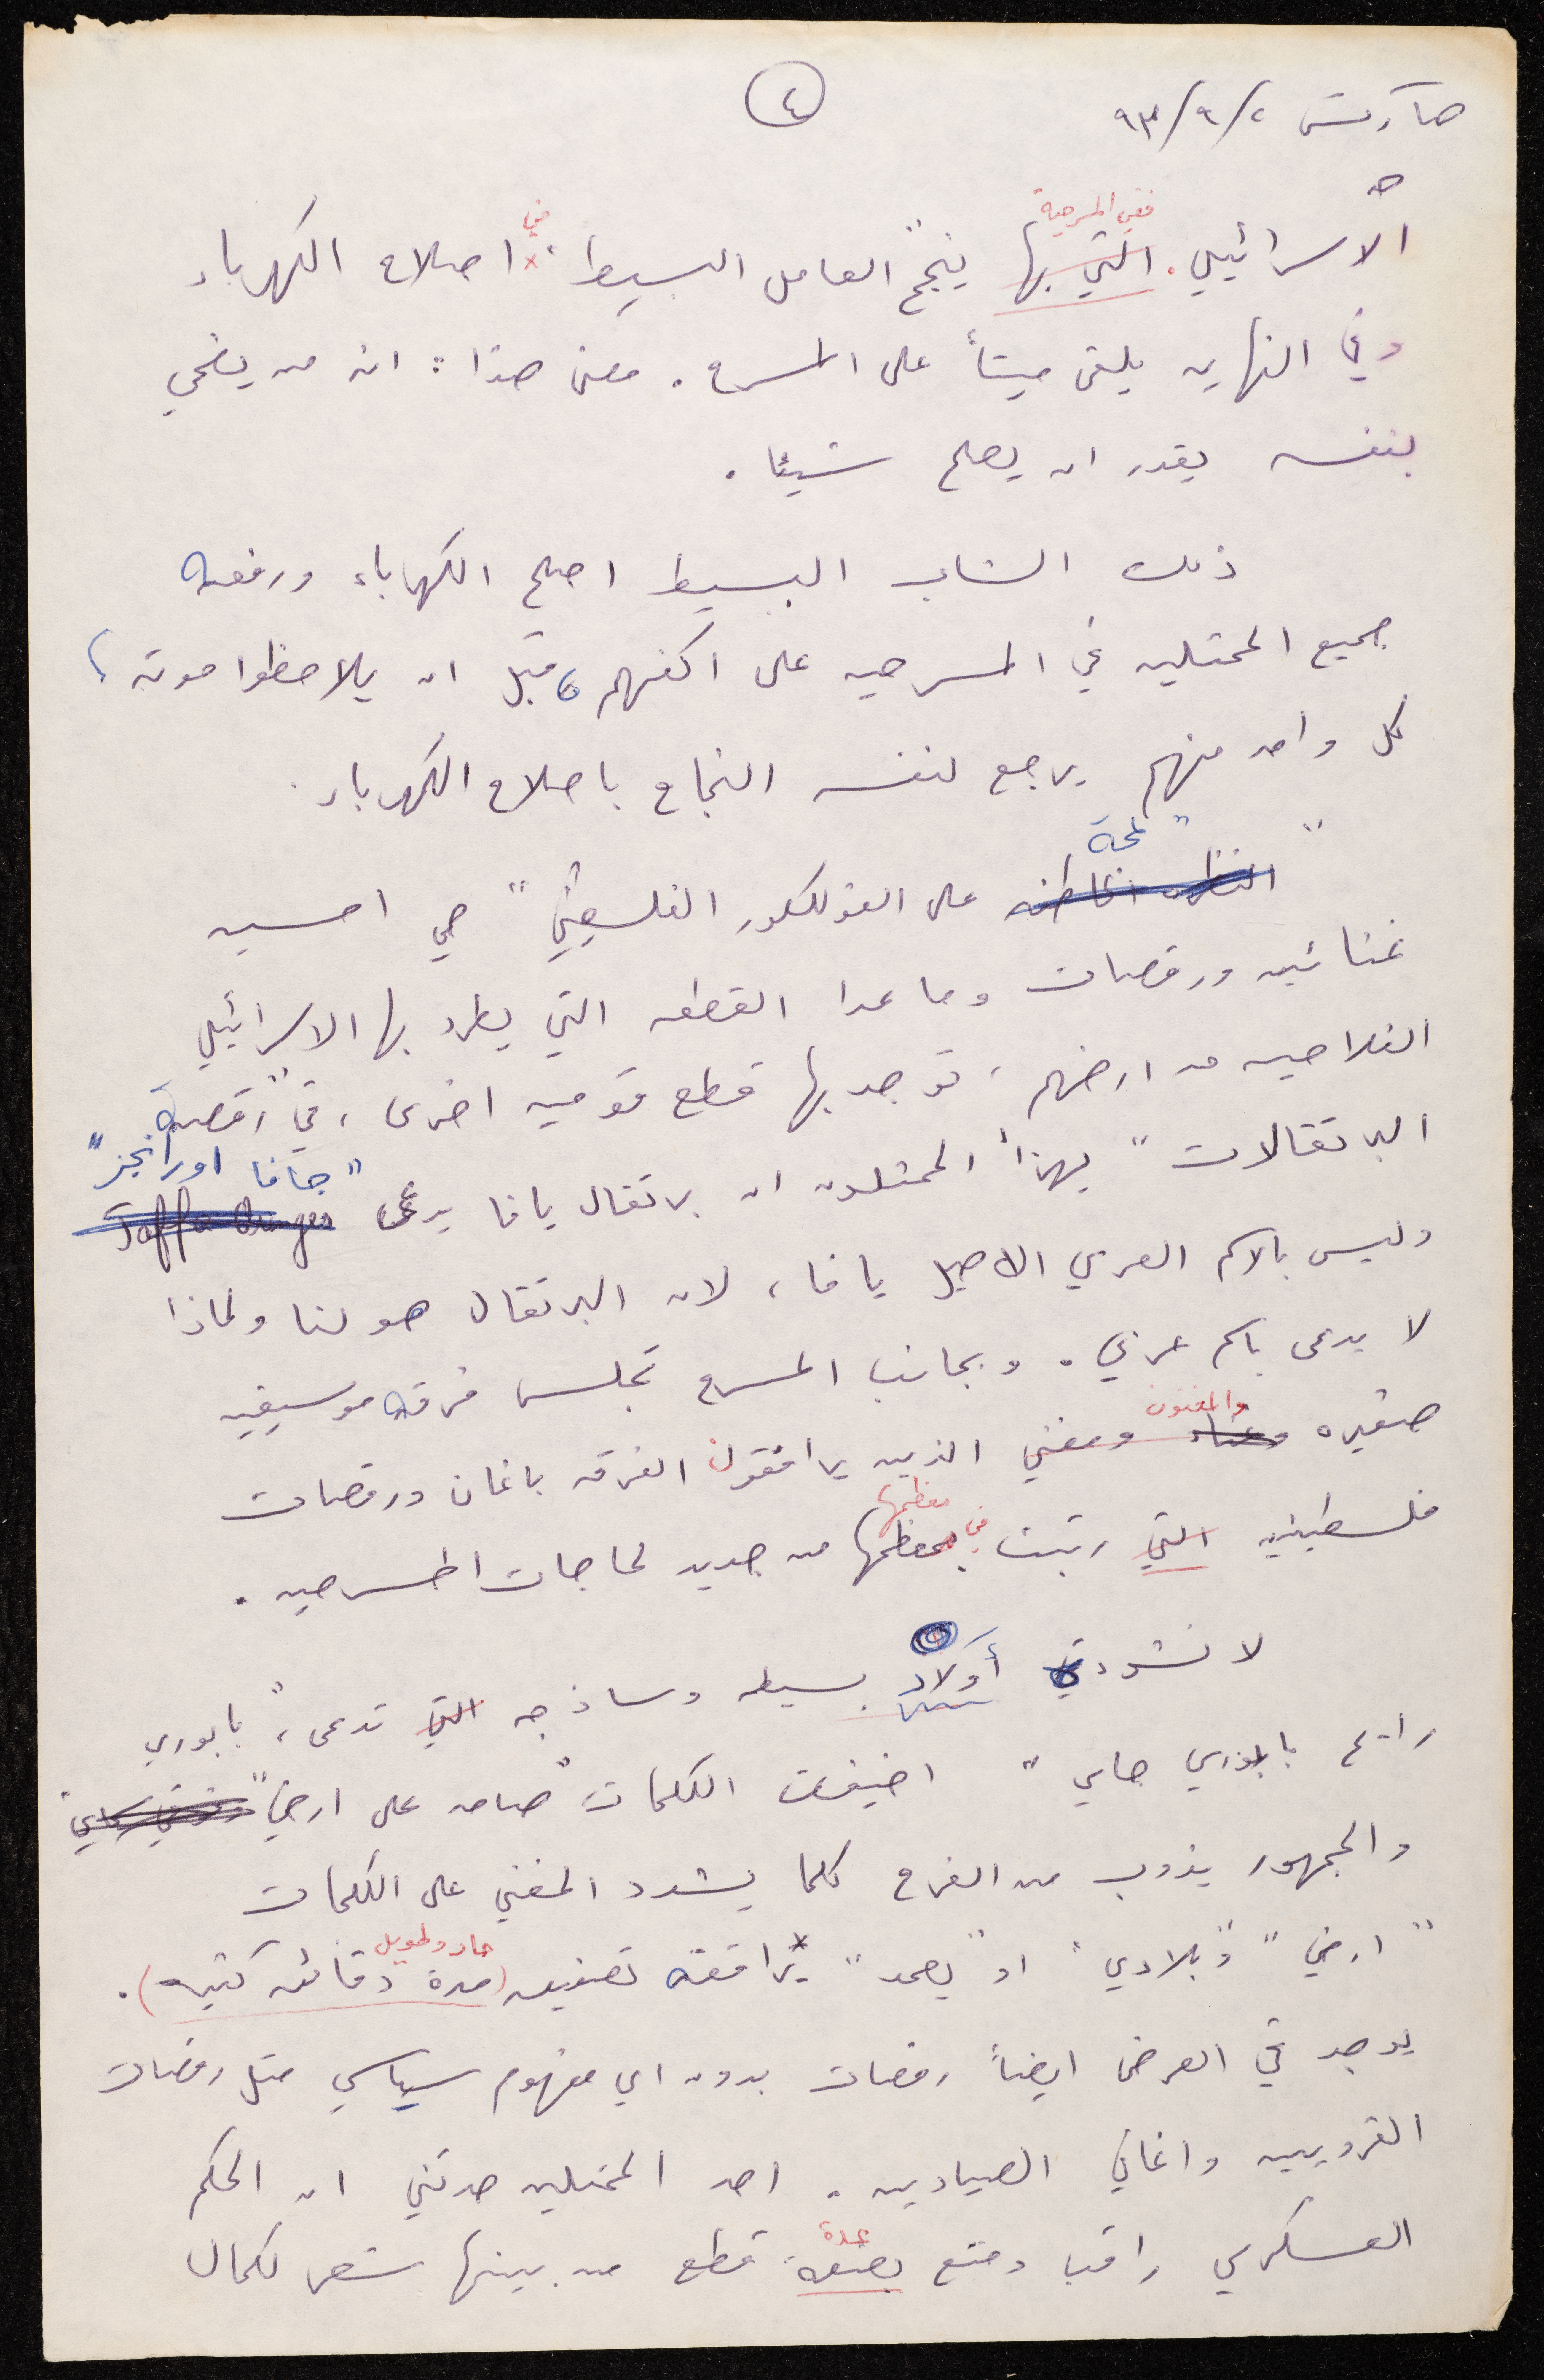 هآرتس ٢/٩/٩٣
٤
الاسرائيلي. التي بها ففي المسرحية ينجح العامل البسيط في اصلاح الكهرباء
وفي النهايه يلقى ميتاً على المسرح. معنى هذا: انه من يضحي
بنفسه يقدر ان يصلح شيئا.
ذلك الشاب البسيط اصلح الكهرباء ورفعه
جميع الممثلين في المسرحيه على اكفهم، قبل ان يلاحظوا موته،
كل واحد منهم يرجع لنفسه النجاح باصلاح الكهرباء.
"النظره الخاطفه لمحة" على الفولكلور الفلسطيني" هي امسيه
غنائيه ورقصات وما عدا القطعه التي يطرد بها الاسرائيلي
الفلاحين من ارضهم، توجد بها قطع قوميه اخرى، في "رقصة
البرتقالات" يهزأ الممثلون ان برتقال يافا يدعى Jaffa Oranges "جافا اورانجز"
وليس بالاسم العربي الاصيل يافا، لان البرتقال هو لنا ولماذا
لا يدعى باسم عربي. وبجانب المسرح تجلس فرقه موسيقيه
صغيره وغناء ومغني والمغنون الذين يرافقون الفرقه باغان ورقصات
فلسطينيه التي رتبت في معظمها من جديد لحاجات المسرحيه.
لانشودة أولاد بسيطه وساذجه التي تدعى، "بابوري
رايح بابوري جاي" اضيفت الكلمات "صامد على ارضي"
والجمهور يذوب من الفرح كلما يشدد المغني على الكلمات
"ارضي" و"بلادي" او "يصمد" يرافقه تصفيق (مدة دقائق كثيره) حاد وطويل.
يوجد في العرض ايضاً رقصات بدون اي مفهوم سياسي مثل رقصات
القرويين واغاني الصيادين. احد الممثلين حدثني ان الحكم
العسكري راقب ومنع بضعة عدة قطع من بينها شعر لكمال